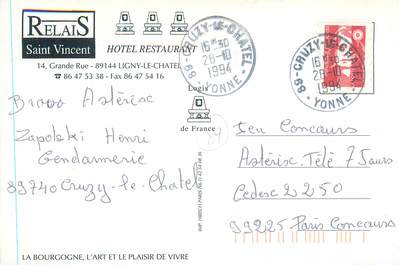 RELAIS
Saint Vincent
HOTEL RESTAURANT
14, Grande Rue - 89144 LIGNY-LE-CHATEL
☎ 86 47 53 38 - Fax 86 47 54 16
Logis
de France
89 - CRUZY-LE-CHATEL
16 H 30
28-10
1994
- YONNE -
89 - CRUZY-LE-CHATEL
16 H 30
28-10
1994
- YONNE -
Bravo Astérisc
Zapolski Henri
Gendarmerie
89740 Cruzy-le-Chatel
Jeu Concours
Astérisc. Télé 7 Jours
Cedesc 2250
99225 Paris Concours
LA BOURGOGNE, L'ART ET LE PLAISIR DE VIVRE